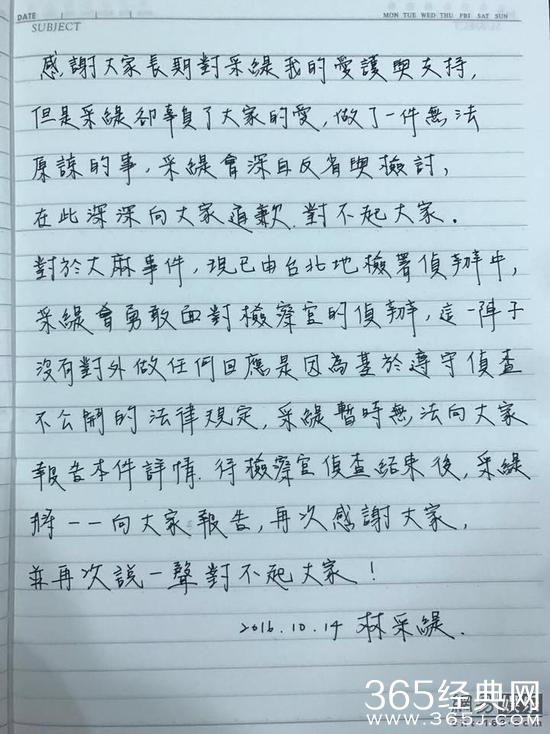 DATE
MON TUE WED THU FRI SAT SUN
SUBJECT
感謝大家長期對采緹我的愛護與支持,
但是采緹卻辜負了大家的愛,做了一件無法
原諒的事,采緹會深自反省與檢討,
在此深深向大家道歉.對不起大家.
對於大麻事件,現已由台北地檢署偵辦中,
采緹會勇敢面對檢察官的偵辦,這一陣子
沒有對外做任何回應是因為基於遵守偵查
不公開的法律規定,采緹暫時無法向大家
報告本件詳情.待檢察官偵查結束後,采緹
將一一向大家報告,再次感謝大家,
並再次說一聲對不起大家!
2016.10.14 林采緹.
365经典网
www.365J.com